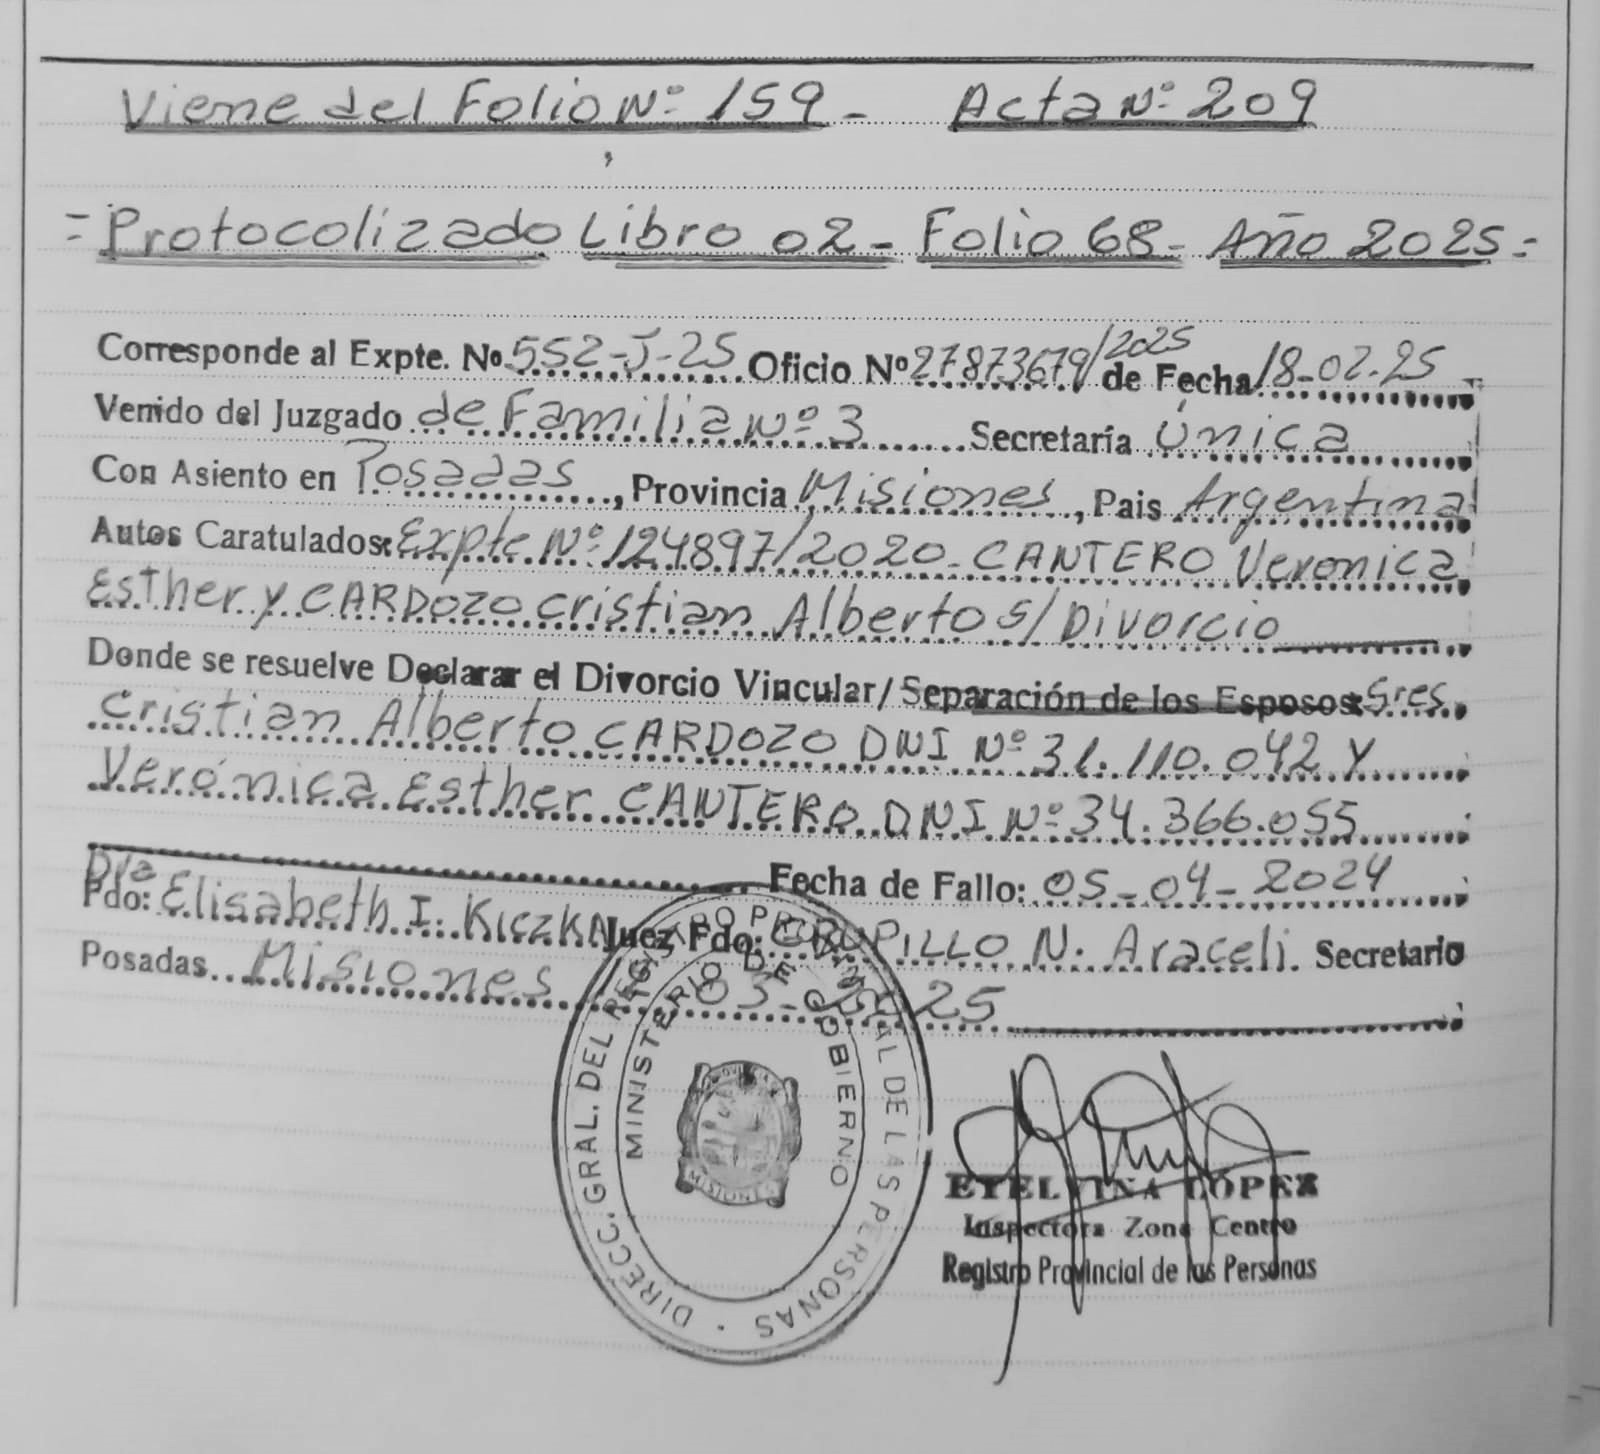 Viene del Folio Nº 159 - Acta Nº 209
= Protocolizado Libro 02 - Folio 68 - Año 2025 =
Corresponde al Expte. No. 552-J-25 Oficio Nº 27873679/2025 de Fecha 18-02-25
Venido del Juzgado de Familia Nº 3 Secretaría única
Con Asiento en Posadas, Provincia Misiones, Pais Argentina
Autos Caratulados: Expte Nº 124897/2020 - CANTERO Veronica
Esther y CARDOZO Cristian Alberto s/Divorcio
Donde se resuelve Declarar el Divorcio Vincular/Separación de los Esposos: Sres.
Cristian Alberto CARDOZO DNI Nº 31.110.042 Y
Verónica Esther CANTERO DNI Nº 34.366.055
Fecha de Fallo: 05-04-2024
Dra
Fdo: Elisabeth I. KICZKA Juez Fdo: N. Araceli. Secretario
Posadas Misiones 03-2025
DIRECC. GRAL. DEL REGISTRO PROVINCIAL DE LAS PERSONAS
MINISTERIO DE GOBIERNO
PROVINCIA
MISIONES
ETELVINA LOPEZ
Inspectora Zona Centro
Registro Provincial de las Personas